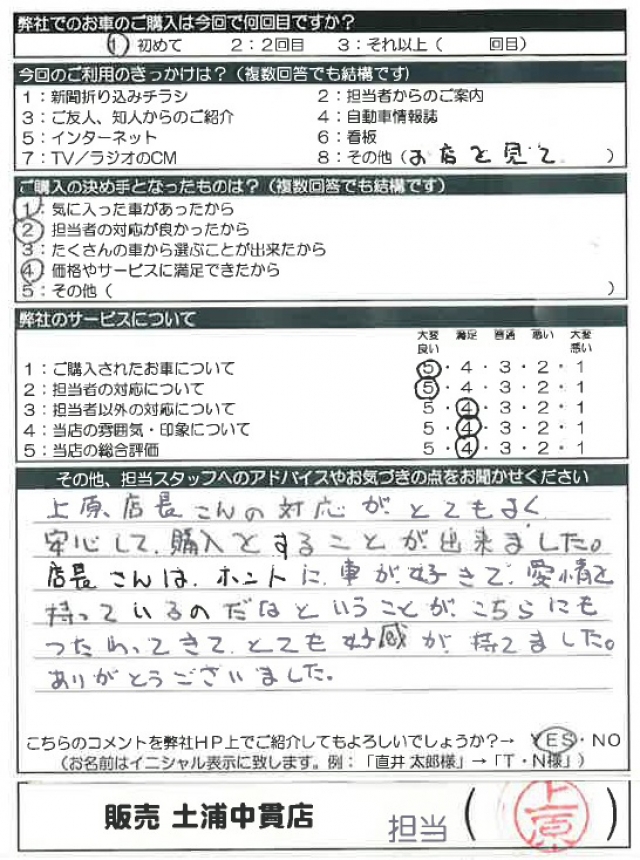 弊社でのお車のご購入は今回で何回目ですか？
1 初めて 2：2回目 3：それ以上（ 回目）
今回のご利用のきっかけは？（複数回答でも結構です）
1：新聞折り込みチラシ 2：担当者からのご案内
3：ご友人、知人からのご紹介 4：自動車情報誌
5：インターネット 6：看板
7：TV／ラジオのCM 8：その他（お店を見て ）
ご購入の決め手となったものは？（複数回答でも結構です）
1：気に入った車があったから
2：担当者の対応が良かったから
3：たくさんの車から選ぶことが出来たから
4：価格やサービスに満足できたから
5：その他（ ）
弊社のサービスについて
大変良い 満足 普通 悪い 大変悪い
1：ご購入されたお車について 5・4・3・2・1
2：担当者の対応について 5・4・3・2・1
3：担当者以外の対応について 5・4・3・2・1
4：当店の雰囲気・印象について 5・4・3・2・1
5：当店の総合評価 5・4・3・2・1
その他、担当スタッフへのアドバイスやお気づきの点をお聞かせください
上原、店長さんの対応がとてもよく
安心して、購入とすることが出来ました。
店長さんは、ホントに車が好きで、愛情を
持っているのだなということが、こちらにも
つたわってきて、とても好感が持てました。
ありがとうございました。
こちらのコメントを弊社HP上でご紹介してもよろしいでしょうか？→ YES・NO
（お名前はイニシャル表示に致します。例：「直井 太郎様」→「T・N様」）
販売 土浦中貫店 担当（上原）